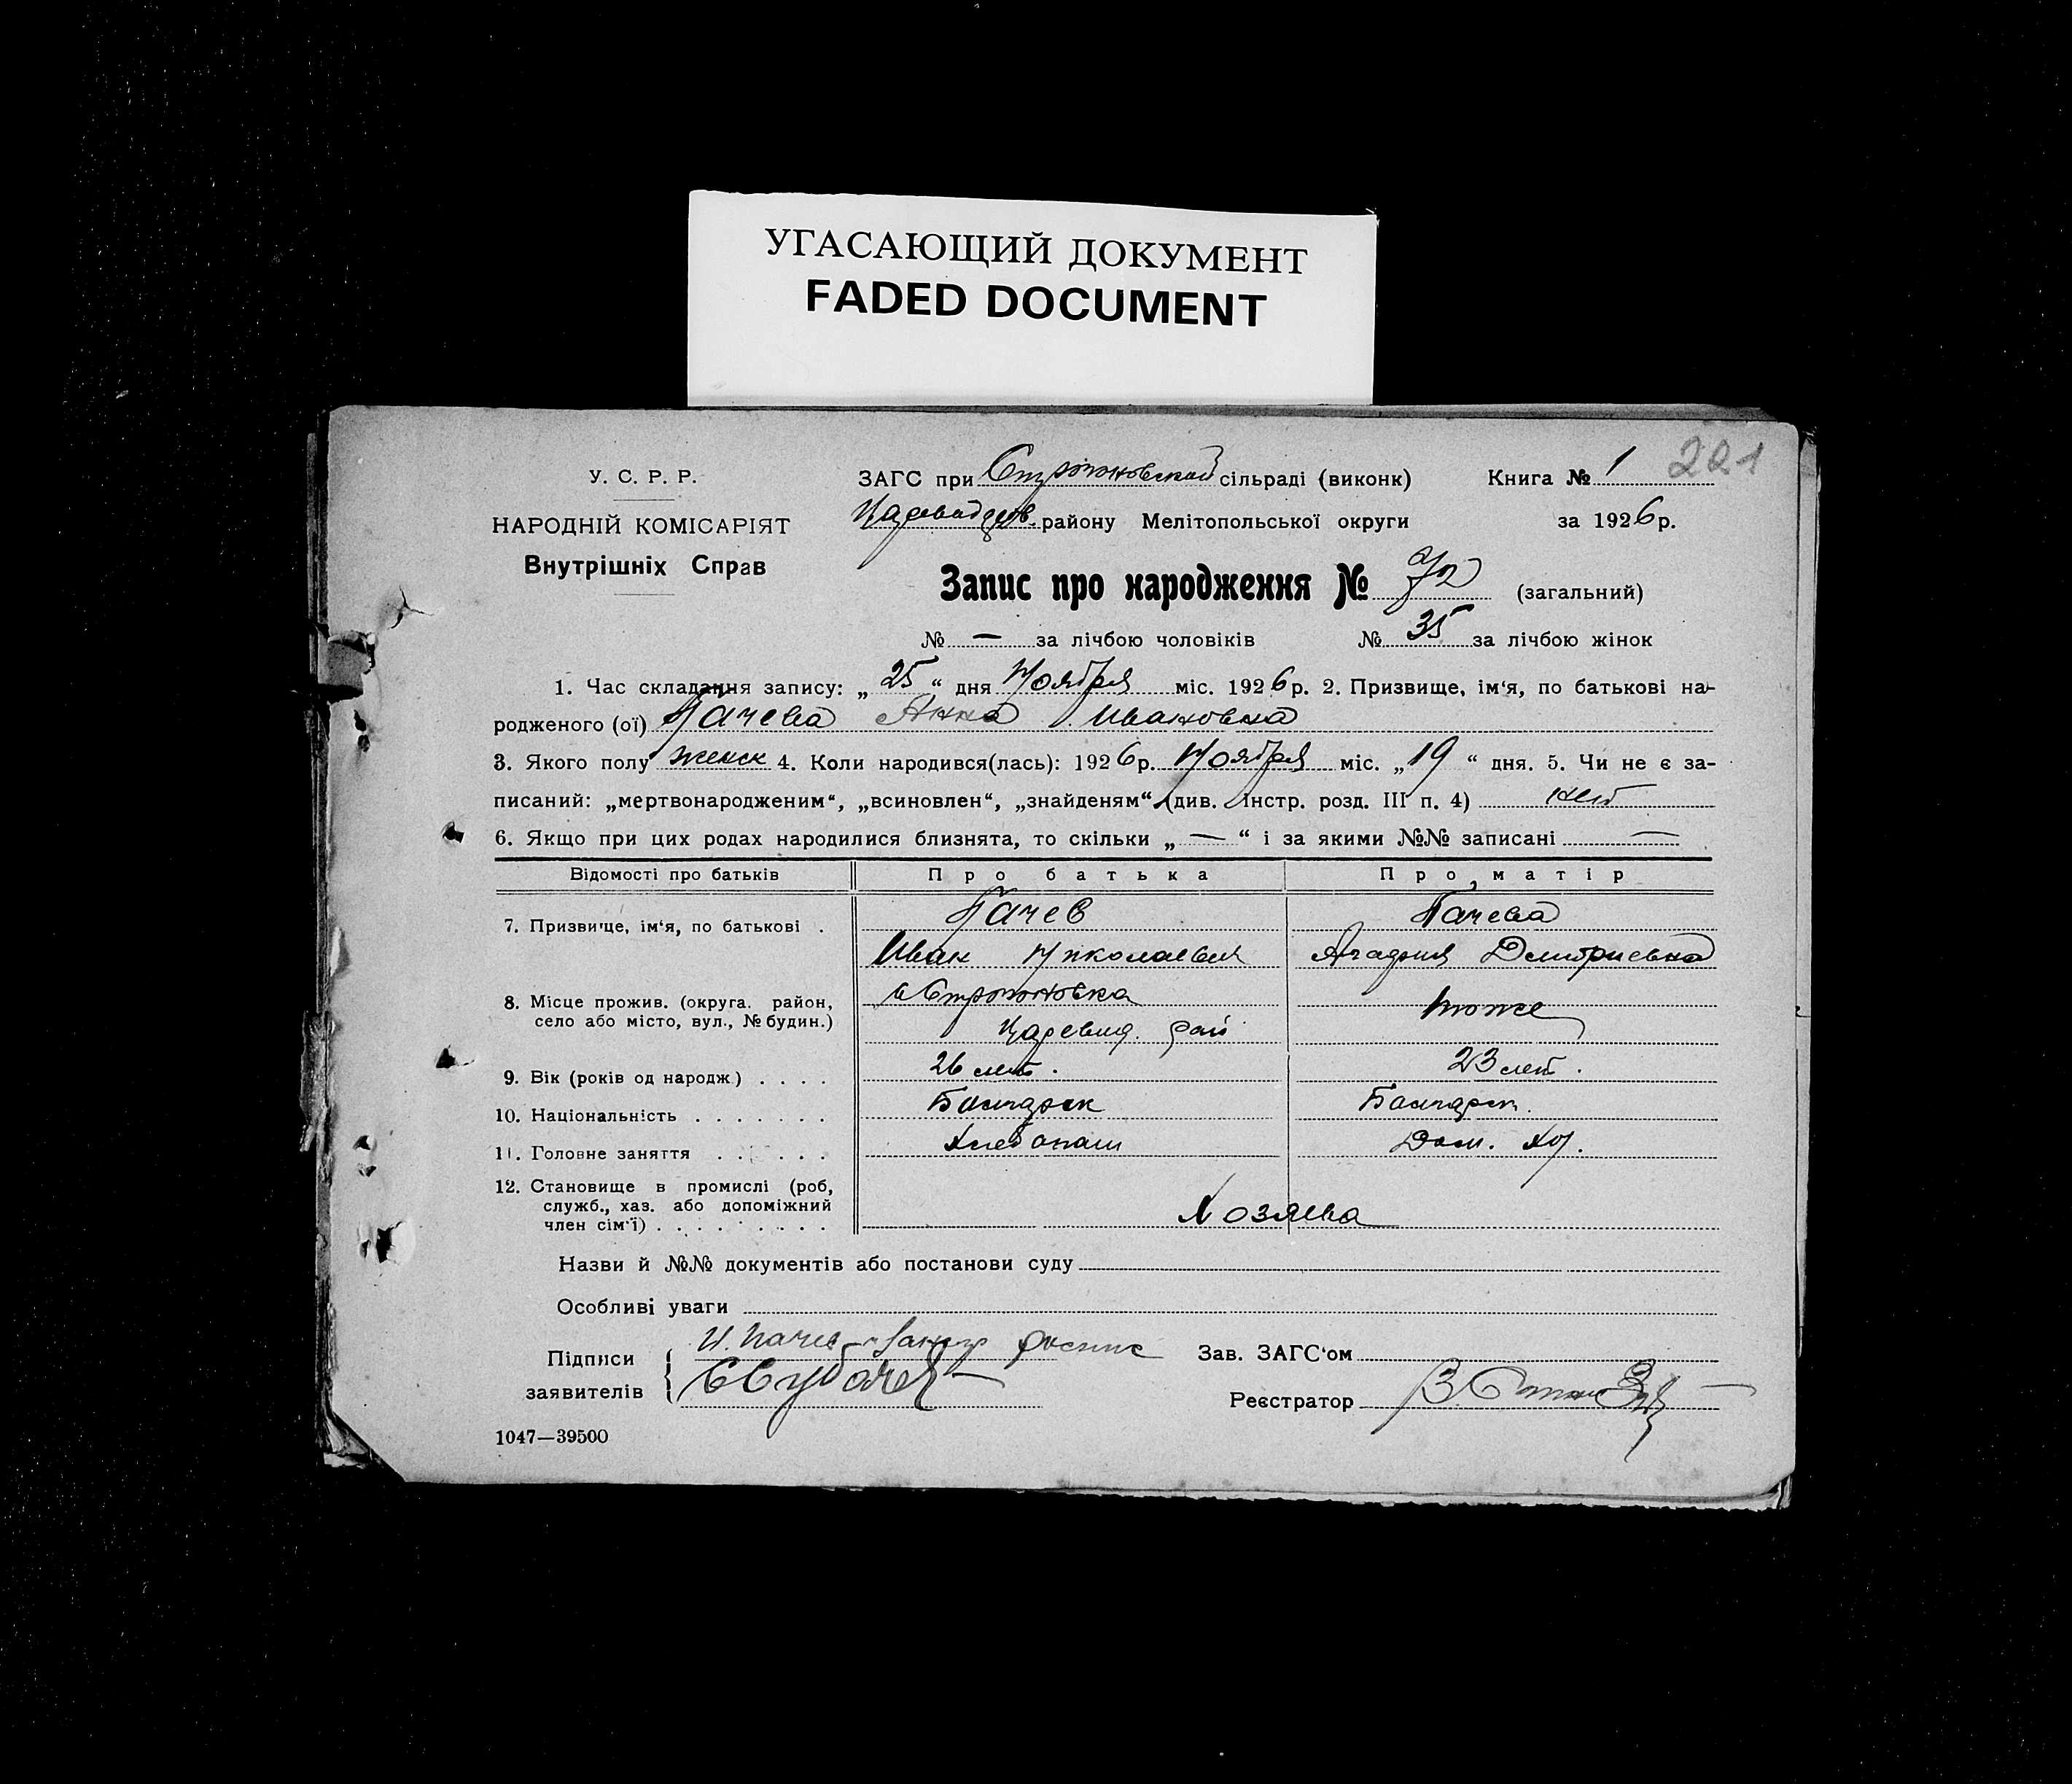 УГАСАЮЩИЙ ДОКУМЕНТ
FADED DOCUMENT
221
У. С. Р. Р.
НАРОДНІЙ КОМІСАРІЯТ
Внутрішніх Справ
ЗАГС при Строгоновской сільраді (виконк) Книга № 1
Цареводаров. району Мелітопольської округи за 1926 р.
Запис про народження № 72 (загальний)
№ — за лічбою чоловіків № 35 за лічбою жінок
1. Час складання запису: „ 25 “ дня Ноября міс. 1926 р. 2. Призвище, ім‘я, по батькові на-
родженого (ої) Пачева Анна Ивановна
3. Якого полу женск 4. Коли народився(лась): 1926 р. Ноября міс. „ 19 “ дня. 5. Чи не є за-
писаний: „мертвонародженим“, „всиновлен“, „знайденям“ (див. Інстр. розд. III п. 4) нет
6. Якщо при цих родах народилися близнята, то скільки „ — “ і за якими №№ записані —
Відомості про батьків Про батька Про матір
7. Призвище, ім‘я, по батькові . Пачев Пачева
Иван Николаевич Агафия Дмитриевна
8. Місце прожив. (округа. район, село або місто, вул., № будин.) с Строгоновка тоже
Царевид. рай
9. Вік (років од народж.) . . . . 26 лет. 23 лет.
10. Національність . . . . . . . Болгарск Болгарск.
11. Головне заняття . . . . . . Хлебопаш Дом. хоз.
12. Становище в промислі (роб,
служб., хаз. або допоміжний
член сім‘ї) . . . . . . . . . Хозяева
Назви й №№ документів або постанови суду
Особливі уваги
Підписи
заявителів
И. Пачев
Зав. ЗАГС‘ом
Реєстратор
1047—39500